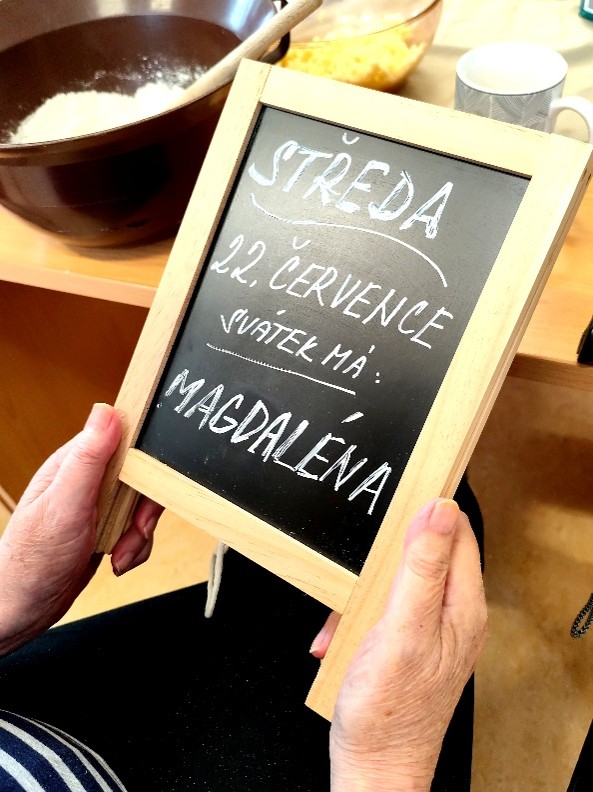 STŘEDA
22. ČERVENCE
SVÁTEK MÁ:
MAGDALÉNA